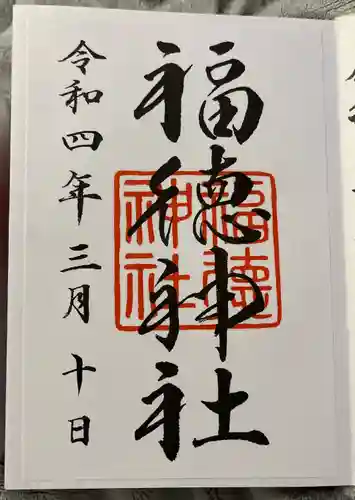 福徳神社
令和四年三月十日
福徳
神社